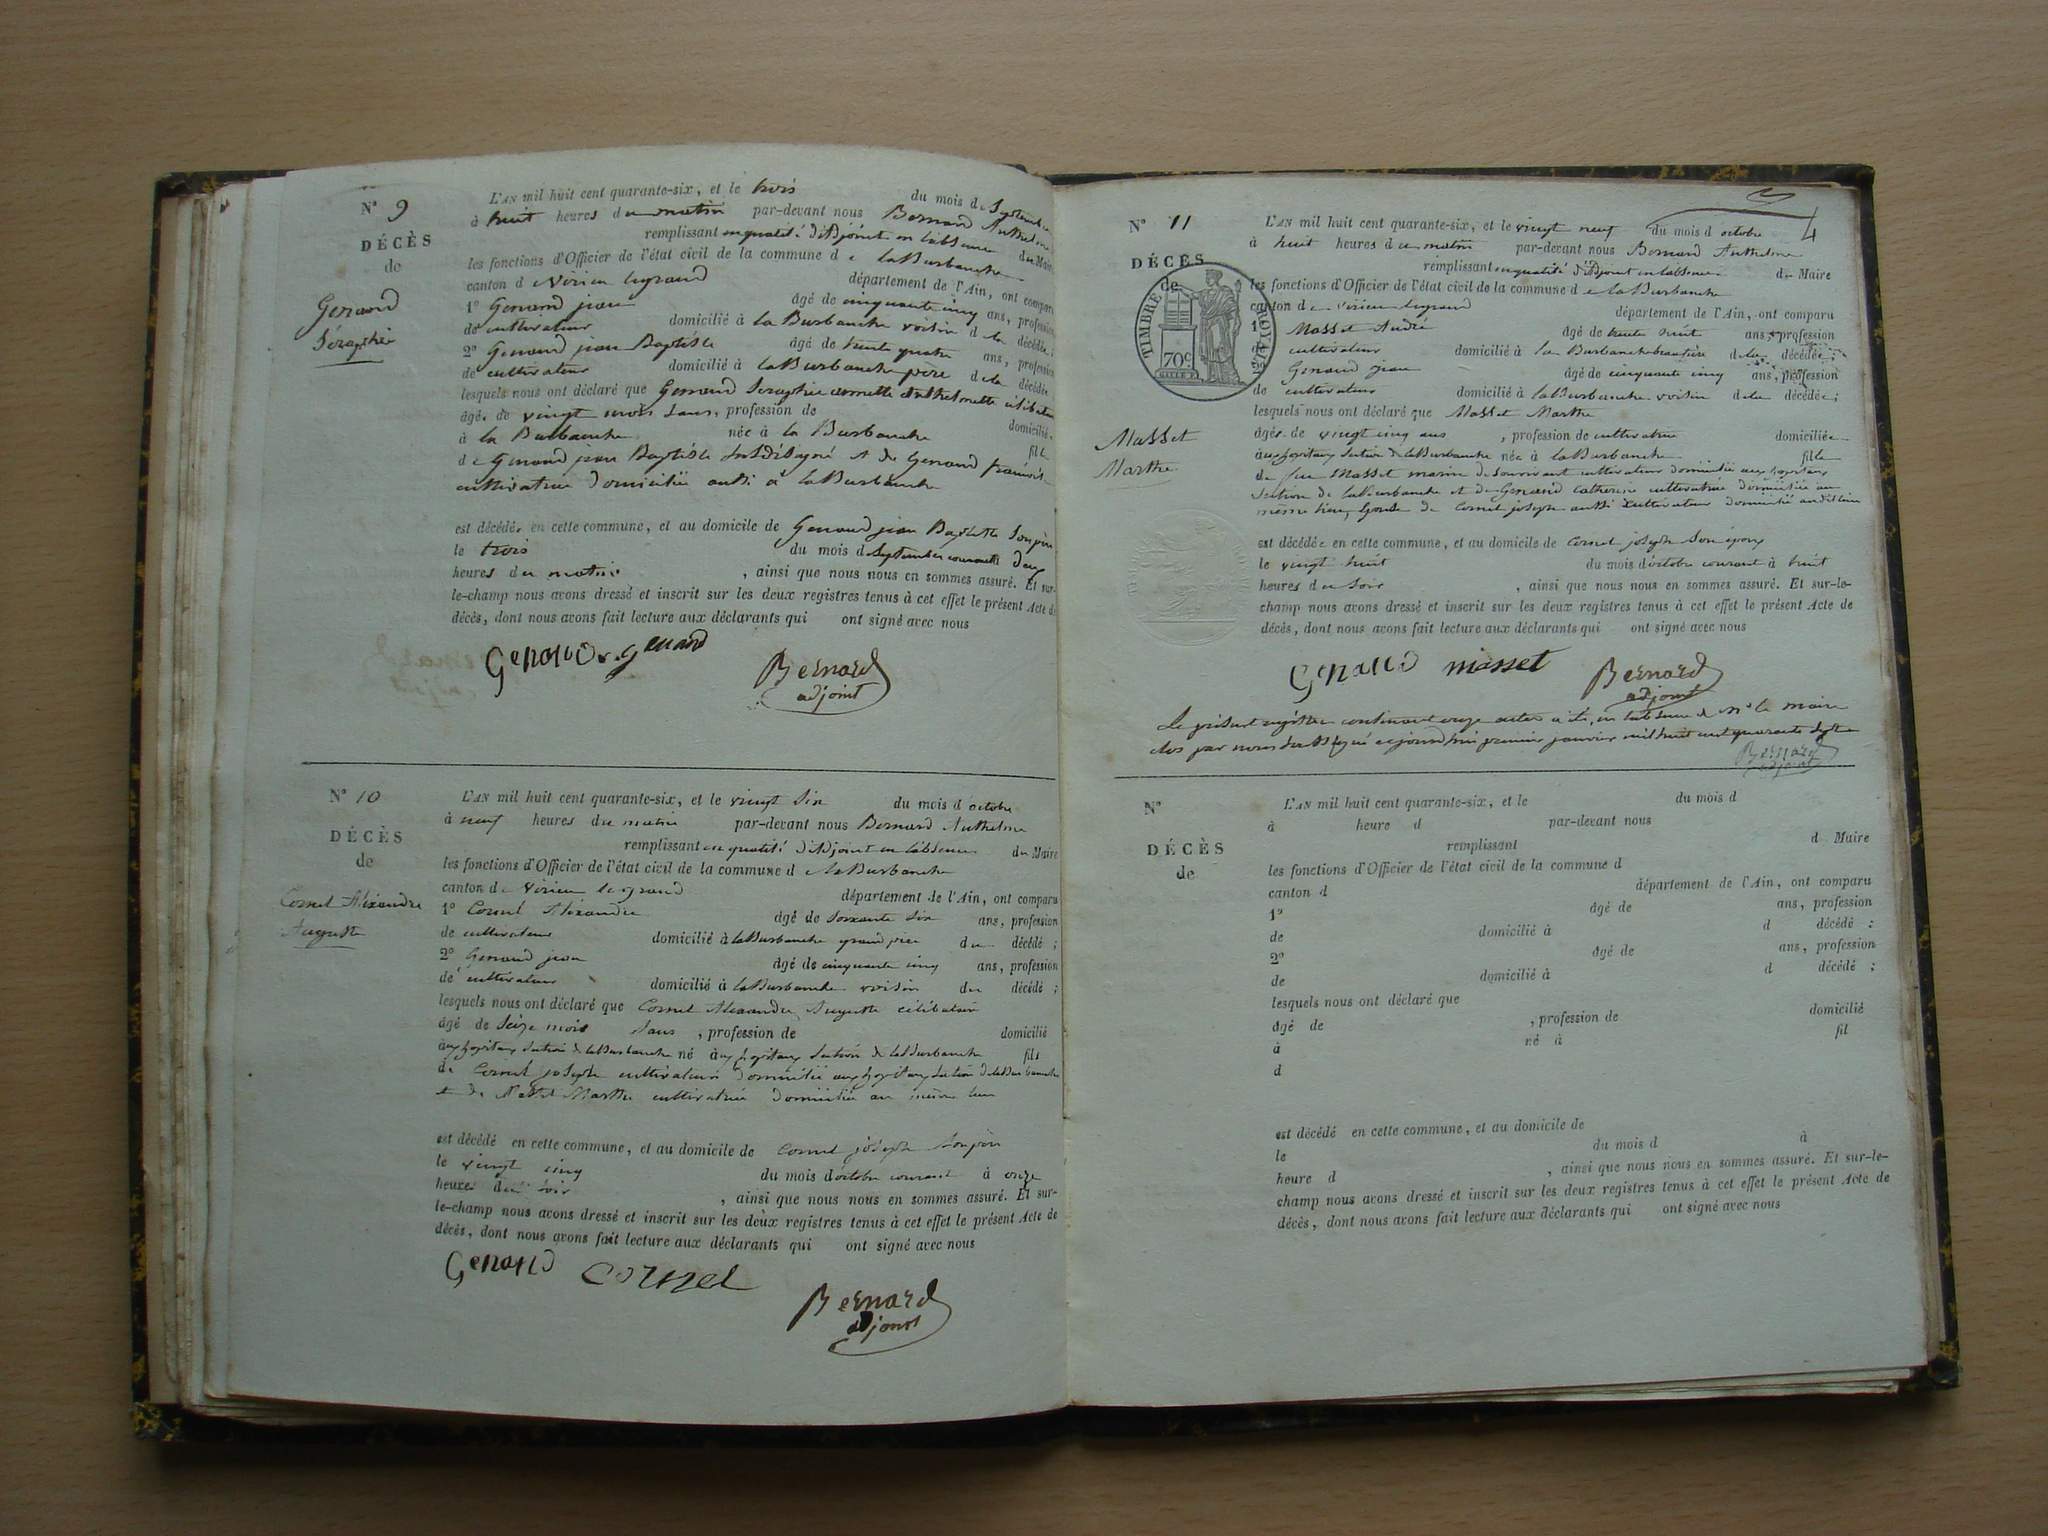 N° 9
DÉCÈS
de
Genand
Séraphie
L'AN mil huit cent quarante-six, et le trois du mois de Septembre
à huit heures du matin par-devant nous Bernard Anthelme
remplissant en qualité d'Adjoint en l'absence du Maire
les fonctions d'Officier de l'état civil de la commune de la Burbanche
canton de Virieu legrand département de l'Ain, ont comparu
1° Genand jean âgé de cinquante cinq ans, profession
de cultivateur domicilié à la Burbanche voisin de la décédée;
2° Genand jean Baptiste âgé de trente quatre ans, profession
de cultivateur domicilié à la Burbanche père de la décédée
lesquels nous ont déclaré que Genand Seraphie Anthelmette célibataire
âgée de vingt mois sans, profession de domiciliée
à la Burbanche née à la Burbanche fille
de Genand jean Baptiste susdésigné et de Genand
cultivatrice domiciliée aussi à la Burbanche
est décédée en cette commune, et au domicile de Genand jean Baptiste son père
le trois du mois de Septembre courant à deux
heures du matin, ainsi que nous nous en sommes assuré. Et sur-
le-champ nous avons dressé et inscrit sur les deux registres tenus à cet effet le présent Acte de
décès, dont nous avons fait lecture aux déclarants qui ont signé avec nous
Genand Genand
Bernard
adjoint
N° 10
DÉCÈS
de
Cornet Alexandre
Auguste
L'AN mil huit cent quarante-six, et le vingt six du mois d'octobre
à neuf heures du matin par-devant nous Bernard Anthelme
remplissant en qualité d'Adjoint en l'absence du Maire
les fonctions d'Officier de l'état civil de la commune de la Burbanche
canton de Virieu le grand département de l'Ain, ont comparu
1° Cornet Alexandre âgé de soixante six ans, profession
de cultivateur domicilié à la Burbanche grand père du décédé;
2° Genand jean âgé de cinquante cinq ans, profession
de cultivateur domicilié à la Burbanche voisin du décédé;
lesquels nous ont déclaré que Cornet Alexandre Auguste célibataire
âgé de seize mois sans, profession de domicilié
aux hopitaux section de la Burbanche né aux hopitaux section de la Burbanche fils
de Cornet joseph cultivateur domicilié aux hopitaux section de la Burbanche
et de Masset Marthe cultivatrice domiciliée au même lieu
est décédé en cette commune, et au domicile de Cornet joseph son père
le vingt cinq du mois d'octobre courant à onze
heures du soir, ainsi que nous nous en sommes assuré. Et sur-
le-champ nous avons dressé et inscrit sur les deux registres tenus à cet effet le présent Acte de
décès, dont nous avons fait lecture aux déclarants qui ont signé avec nous
Genand cornet
Bernard
adjoint
4
N° 11
DÉCÈS
de
TIMBRE ROYAL
70c
Masset
Marthe
L'AN mil huit cent quarante-six, et le vingt neuf du mois d'octobre
à huit heures du matin par-devant nous Bernard Anthelme
remplissant en qualité d'Adjoint en l'absence du Maire
les fonctions d'Officier de l'état civil de la commune de la Burbanche
canton de Virieu legrand département de l'Ain, ont comparu
1° Masset André âgé de trente huit ans, profession
de cultivateur domicilié à la Burbanche beaufrère de la décédée;
2° Genand jean âgé de cinquante cinq ans, profession
de cultivateur domicilié à la Burbanche voisin de la décédée;
lesquels nous ont déclaré que Masset Marthe
âgée de vingt cinq ans, profession de cultivatrice domiciliée
aux hopitaux section de la Burbanche née à la Burbanche fille
de feu Masset marin de son vivant cultivateur domicilié aux hopitaux
section de la Burbanche et de Genand Catherine cultivatrice domiciliée au
même lieu, épouse de Cornet joseph aussi cultivateur domicilié audit lieu
est décédée en cette commune, et au domicile de Cornet joseph son époux
le vingt huit du mois d'octobre courant à huit
heures du soir, ainsi que nous nous en sommes assuré. Et sur-le-
champ nous avons dressé et inscrit sur les deux registres tenus à cet effet le présent Acte de
décès, dont nous avons fait lecture aux déclarants qui ont signé avec nous
Genand masset Bernard
adjoint
Le présent registre contenant onze actes a été, en l'absence de Mr le maire
clos par nous soussigné aujourd'hui premier janvier mil huit cent quarante sept
Bernard
adjoint
N°
DÉCÈS
de
L'AN mil huit cent quarante-six, et le du mois d
à heure d par-devant nous
remplissant d Maire
les fonctions d'Officier de l'état civil de la commune d
canton d département de l'Ain, ont comparu
1° âgé de ans, profession
de domicilié à d décédé;
2° âgé de ans, profession
de domicilié à d décédé;
lesquels nous ont déclaré que
âgé de, profession de domicilié
à né à fil
d
est décédé en cette commune, et au domicile de
le du mois d à
heure d, ainsi que nous nous en sommes assuré. Et sur-le-
champ nous avons dressé et inscrit sur les deux registres tenus à cet effet le présent Acte de
décès, dont nous avons fait lecture aux déclarants qui ont signé avec nous